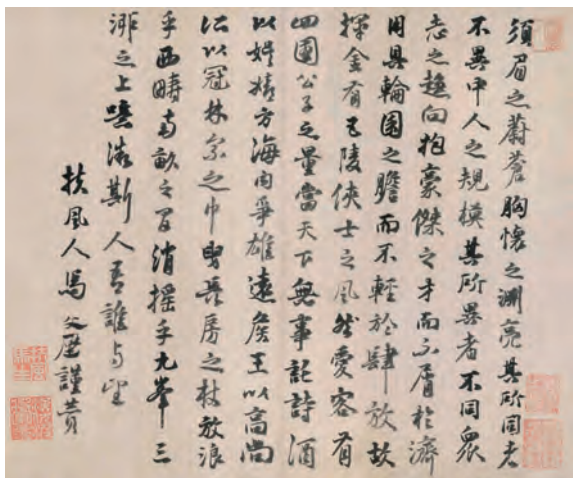 須眉之蔚蒼胸懷之淵亮其所同者
不異中人之規模其所異者不同眾
志之趨向抱豪傑之才而不屑於濟
用具輪囷之膽而不輕於肆放故
揮金有五陵俠士之風然愛客有
四國公子之量當天下無事託詩酒
以娛情方海內爭雄遠侯王以高尚
所以冠林宗之巾曳長房之杖放浪
乎西疇南畝之間消搖乎九峯三
泖之上噫微斯人吾誰與望
扶風人馬文璧謹贊